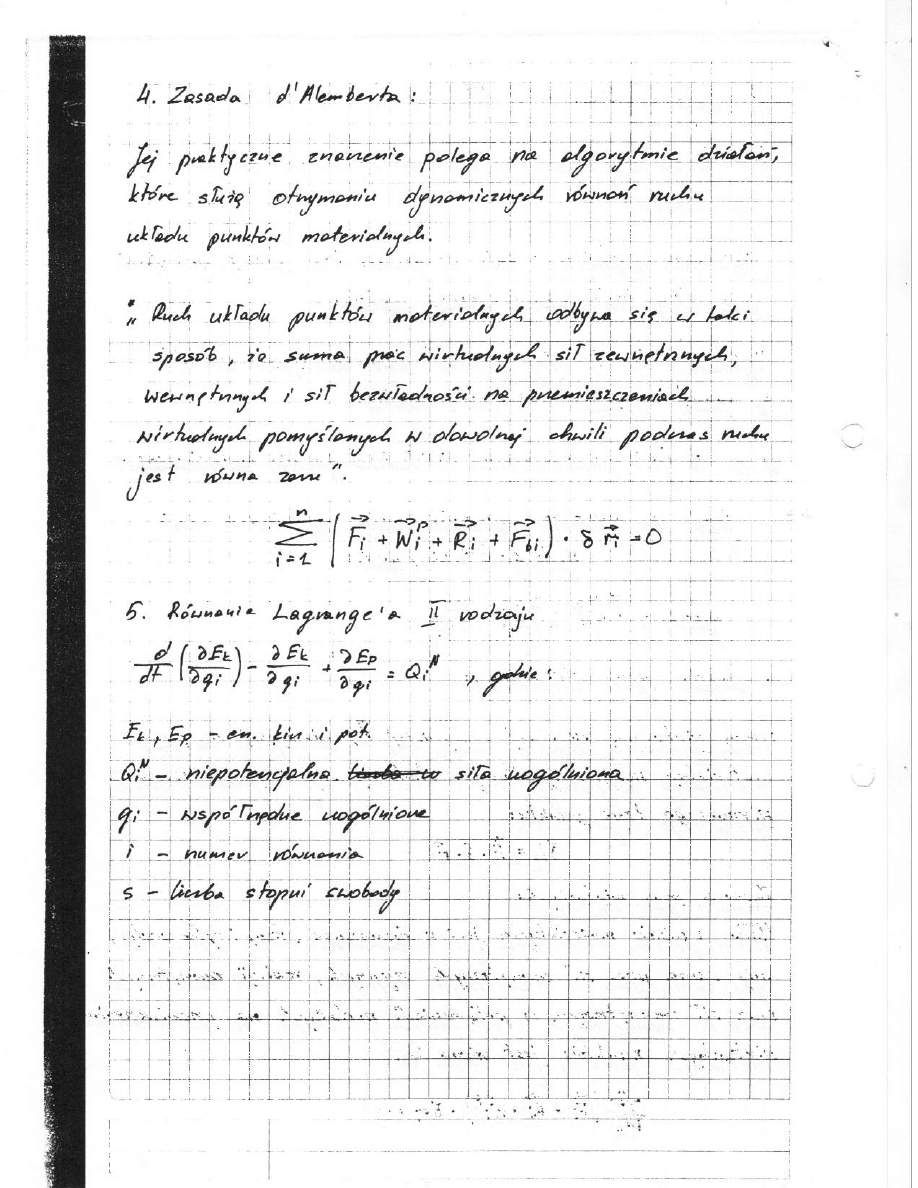 4. Zasada d'Alemberta:
Jej praktyczne znaczenie polega na algorytmie działań,
które służą otrzymaniu dynamicznych równań ruchu
układu punktów materialnych.
„Ruch układu punktów materialnych odbywa się w taki
sposób, że suma prac wirtualnych sił zewnętrznych,
wewnętrznych i sił bezwładności na przemieszczeniach
wirtualnych pomyślanych w dowolnej chwili podczas ruchu
jest równa zeru".
\sum_{i=1}^{n} ( \vec{F_i} + \vec{W_i}^p + \vec{R_i} + \vec{F_{bi}} ) · δ \vec{r_i} = 0
5. Równanie Lagrange'a II rodzaju
\frac{d}{dt} ( \frac{∂E_k}{∂q_i} ) - \frac{∂E_k}{∂q_i} + \frac{∂E_p}{∂q_i} = Q_i^N , gdzie:
E_k, E_p - en. kin. i pot.
Q_i^N - niepotencjalna siła uogólniona
q_i - współrzędne uogólnione
i - numer równania
s - liczba stopni swobody